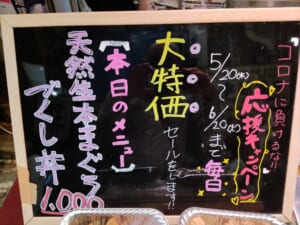 コロナに負けるな!!
応援キャンペーン
5/20(水)
〜
6/20(土)まで毎日
大特価
セールをします!!
【本日のメニュー】
天然生本まぐろ
づくし丼
1,000